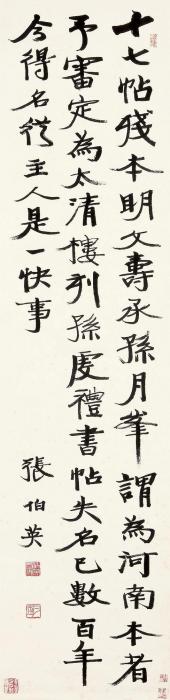 十七帖殘本明文壽承孫月峯謂為河南本者
予審定為太清樓列孫虔禮書帖失名已數百年
今得名從主人是一快事
張伯英